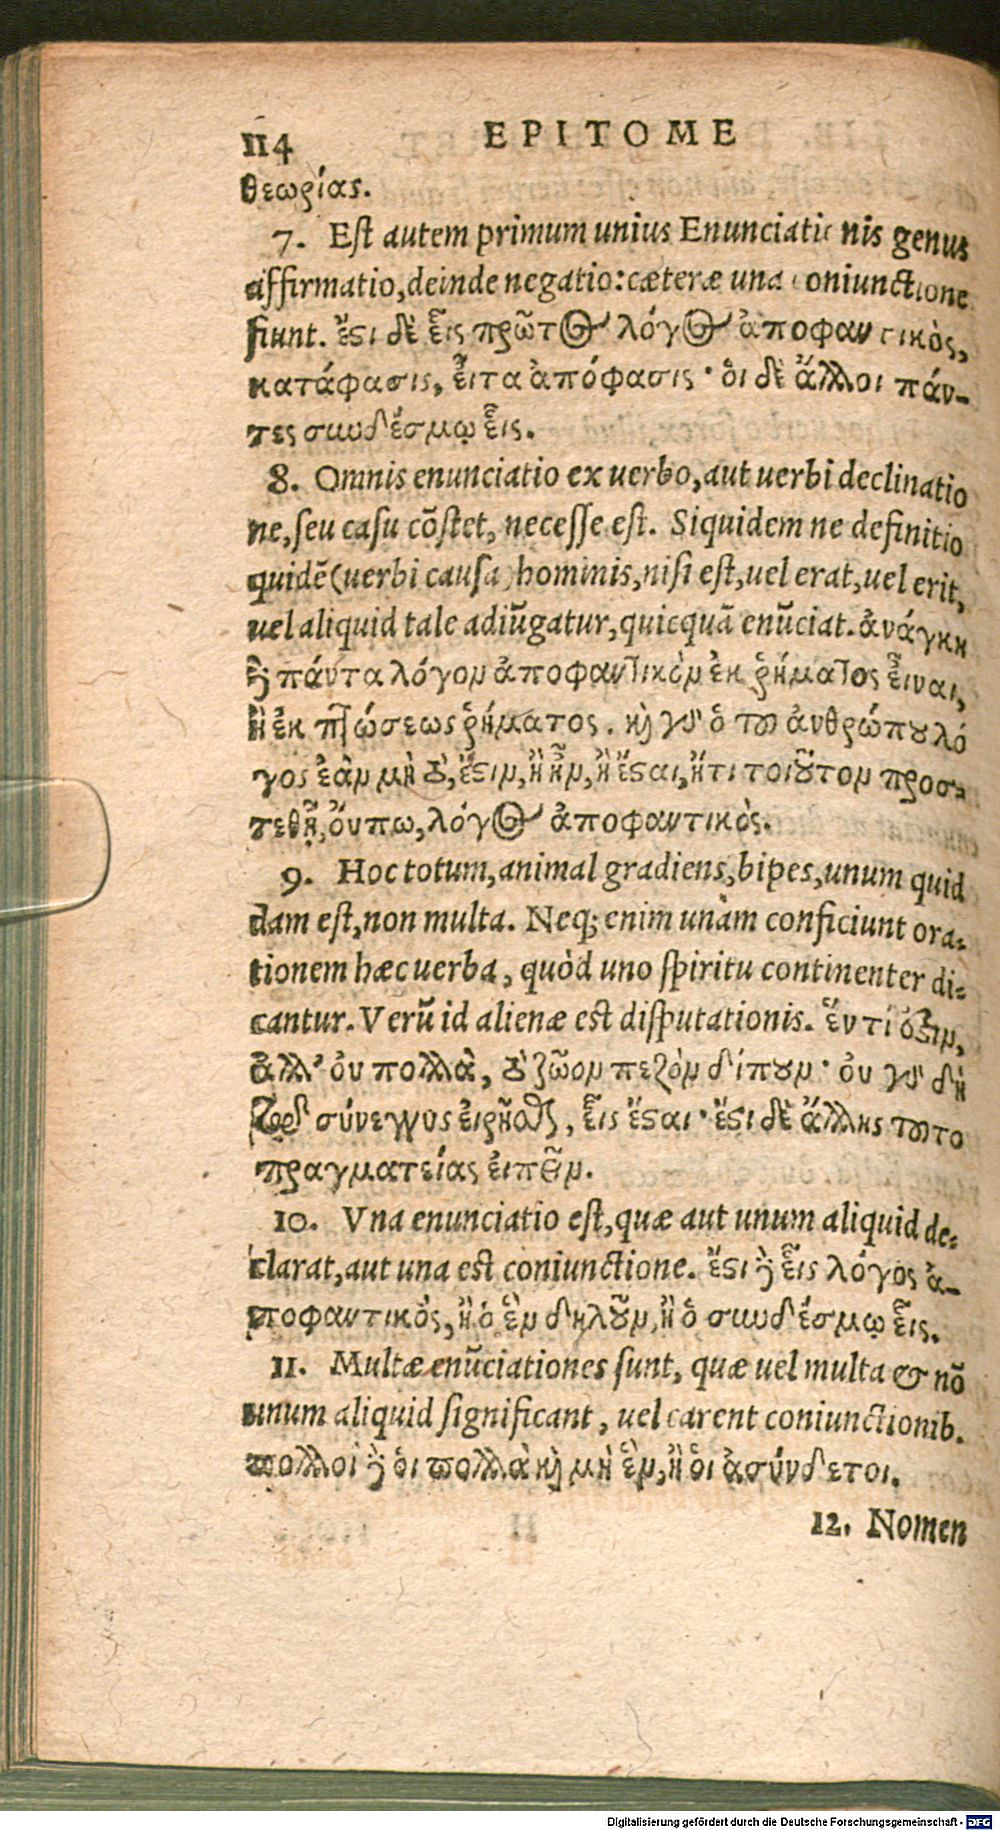 114 EPITOME
θεωρίας.
7. Est autem primum unius Enunciationis genus
affirmatio, deinde negatio: cæteræ una coniunctione
fiunt. ἔστι δὲ εἷς πρῶτος λόγος ἀποφαντικὸς,
κατάφασις, εἶτα ἀπόφασις· ὁι δὲ ἄλλοι πάν-
τες συνδέσμῳ εἷς.
8. Omnis enunciatio ex uerbo, aut uerbi declinatio
ne, seu casu cōstet, necesse est. Siquidem ne definitio
quidē (uerbi causa) hominis, nisi est, uel erat, uel erit,
uel aliquid tale adiūgatur, quicquā enūciat. ἀνάγκη
δὲ πάντα λόγον ἀποφαντικὸν ἐκ ῥήματος εἶναι,
ἢ ἐκ πτώσεως ῥήματος. καὶ γὰρ ὁ τοῦ ἀνθρώπου λό
γος ἐὰν μὴ τὸ, ἔστιν, ἢ ἦν, ἢ ἔσται, ἤ τι τοιοῦτον προσ-
τεθῇ, ὄυπω, λόγος ἀποφαντικὸς.
9. Hoc totum, animal gradiens, bipes, unum quid
dam est, non multa. Neq; enim unam conficiunt ora-
tionem hæc uerba, quòd uno spiritu continenter di-
cantur. Verū id alienæ est disputationis. ἕν τί ὀξιν,
ἀλλ' ὀυ πολλὰ, τὸ ζῶον πεζὸν δίπουν· ὀυ γὰρ δὴ
τῷ σύνεγγυς ἐιρῆσθαι, εἷς ἔσται· ἔστι δὲ ἄλλης τοῦτο
πραγματείας ἐιπεῖν.
10. Vna enunciatio est, quæ aut unum aliquid de-
clarat, aut una est coniunctione. ἔστι δὲ εἷς λόγος ἀ-
ποφαντικὸς, ἢ ὁ ἓν δηλῶν, ἢ ὁ συνδέσμῳ εἷς.
11. Multæ enūciationes sunt, quæ uel multa & nō
unum aliquid significant, uel carent coniunctionib.
πολλοὶ δὲ ὁι πολλὰ καὶ μὴ ἓν, ἢ ὁι ἀσύνδετοι.
12. Nomen
Digitalisierung gefördert durch die Deutsche Forschungsgemeinschaft - DFG